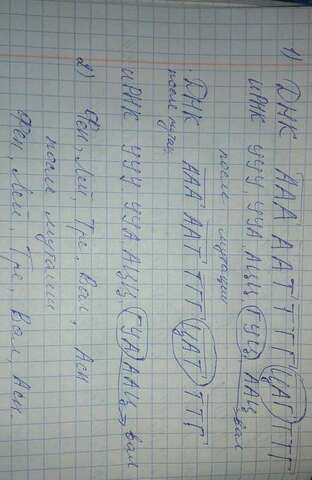 1) ДНК ААА ААТ ТГГ ЦАГ ТТГ
иРНК УУУ УУА АЦЦ ГУЦ ААЦ вал
после мутации
ДНК ААА ААТ ТГГ ЦАТ ТТГ
после мутац.
иРНК УУУ УУА АЦЦ ГУА ААЦ вал
2) Фен, Лей, Тре, Вал, Асн
после мутации
Фен, Лей, Тре, Вал, Асн.